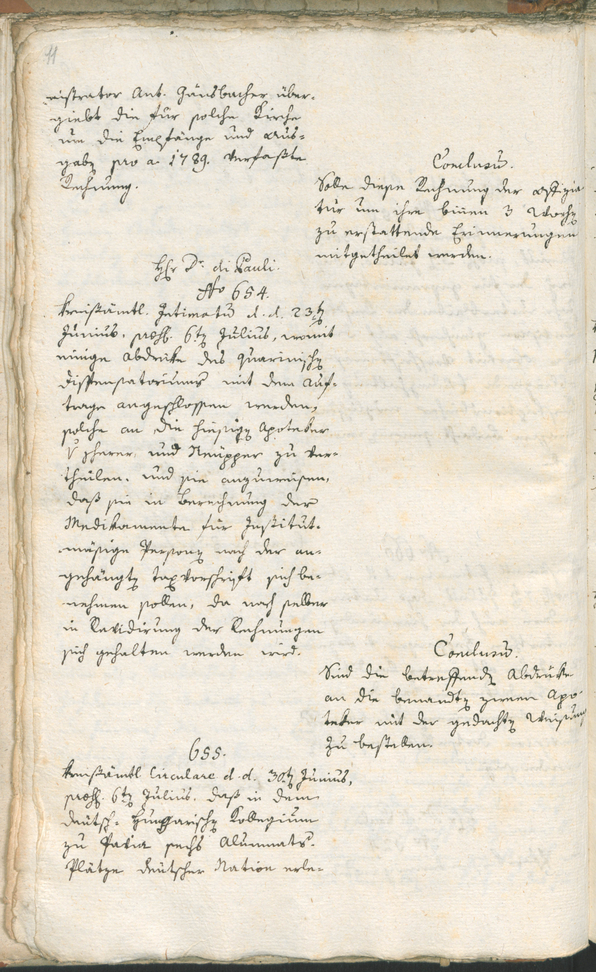 11
nistrator Ant. Gänsbacher über-
giebt die für solche Kirche
um die Empfänge und Aus-
gabn pro a. 1789. verfaßte
Rechnung.
Conclusũ.
Solle diese Rechnung der Offizia
tur um ihre biñen 3 Wochn
zu erstattende Erinnerungen
mitgetheilet werden.
Hr. Dr. di Pauli.
No 654.
Kreißämtl. Intimatũ d. d. 23tn
Junius, præs. 6tn Julius, womit
einige Abdrüke des Quarinischn
Dispensatoriums mit dem Auf-
trage angeschlossen werden,
solche an die hiesign Apoteker
und zu ver-
theilen, und sie anzuweisen,
daß sie in Berechnung der
Medikamente für Institut-
mäsige Personn nach der an-
gehängtn taxvorschrift sich be-
nehmen sollen, da nach selber
in Revidirung der Rechnungen
sich gehalten werden wird.
Conclusũ.
Sind die betreffendn Abdrüke
an die benandtn zween Apo-
teker mit der gedachtn Weisung
zu bestellen.
655.
Kreißämtl Circulare d. d. 30tn Junius,
præs. 6tn Julius, daß in dem
deutsch-Hungarischn Kollegium
zu Pavia sechs Alumnats-
Plätze deutscher Nation erle-